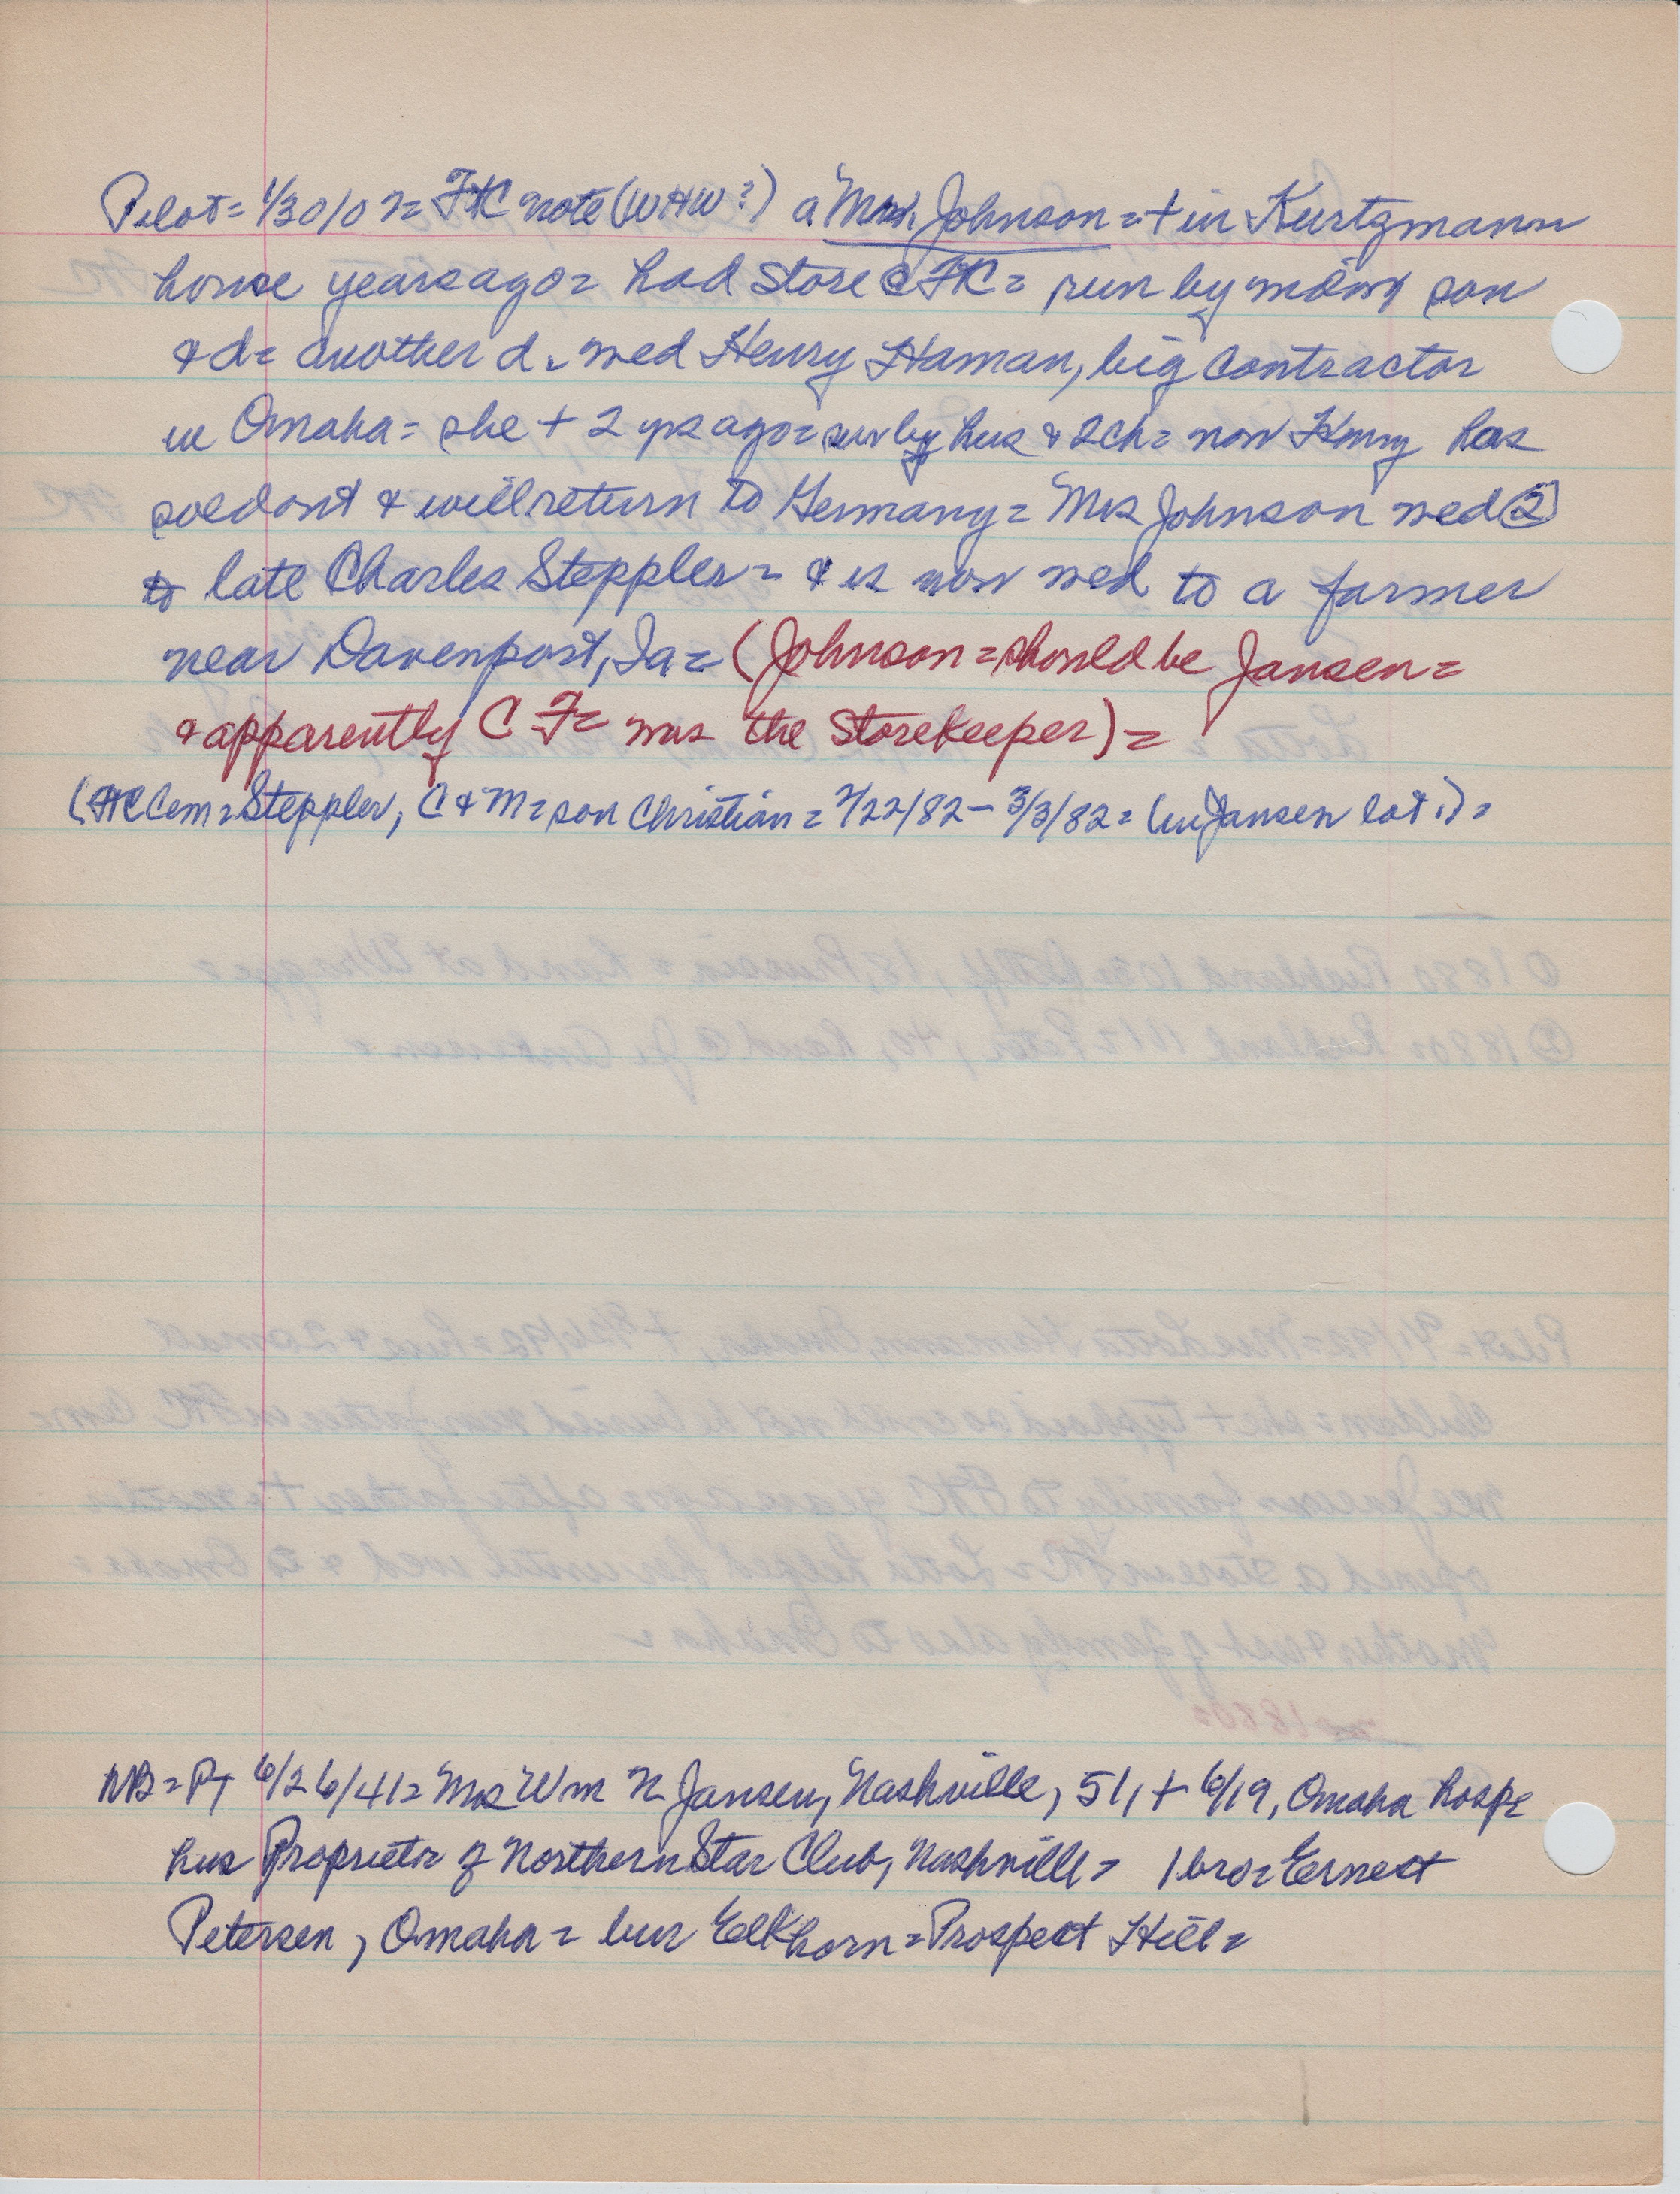 Pilot = 1/30/02 = FtC note (WHW?) a Mr. Johnson = + in Kurtzmann
house years ago = had store @ FtC = run by widow, son
& d = another d. wed Henry Haman, big contractor
in Omaha = she + 2 yrs ago = sur by hus & 2 ch = now Henry has
sold out & will return to Germany = Mrs Johnson wed ②
to late Charles Steppler = & is now wed to a farmer
near Davenport, Ia = (Johnson = should be Jansen =
& apparently C F = was the storekeeper) =
(FtC Cem = Steppler, C & M = son Christian = 2/22/82 – 3/3/82 = (in Jansen lot.) =
NB = PT 6/26/41 = Mrs Wm N Jansen, Nashville, 51, + 6/19, Omaha hosp =
hus Proprietor of Northern Star Club, Nashville = 1 bro = Ernest
Petersen, Omaha = bur Elkhorn = Prospect Hill =